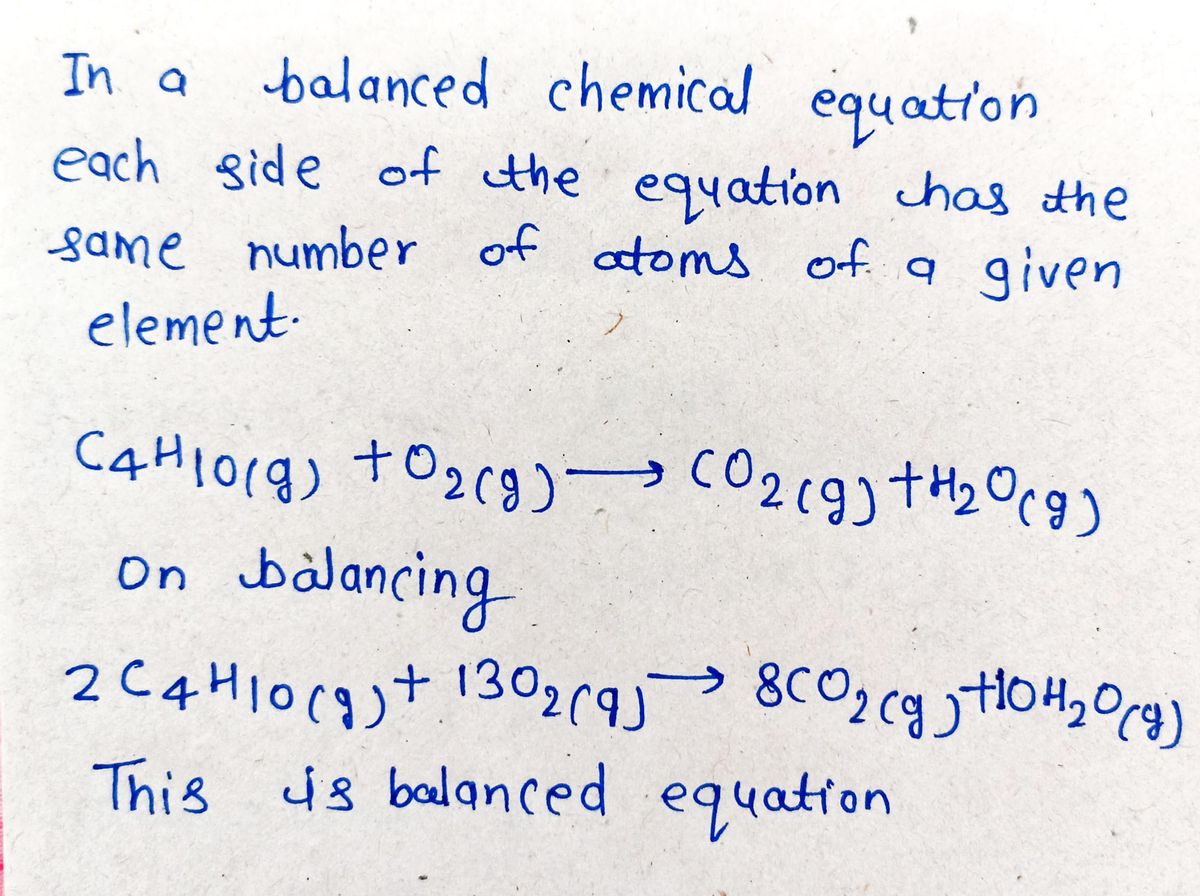 In a balanced chemical equation
each side of the equation has the
same number of atoms of a given
element.
C4H10(g) + O2(g) → CO2(g) + H2O(g)
On balancing
2C4H10(g) + 13O2(g) → 8CO2(g) + 10H2O(g)
This is balanced equation